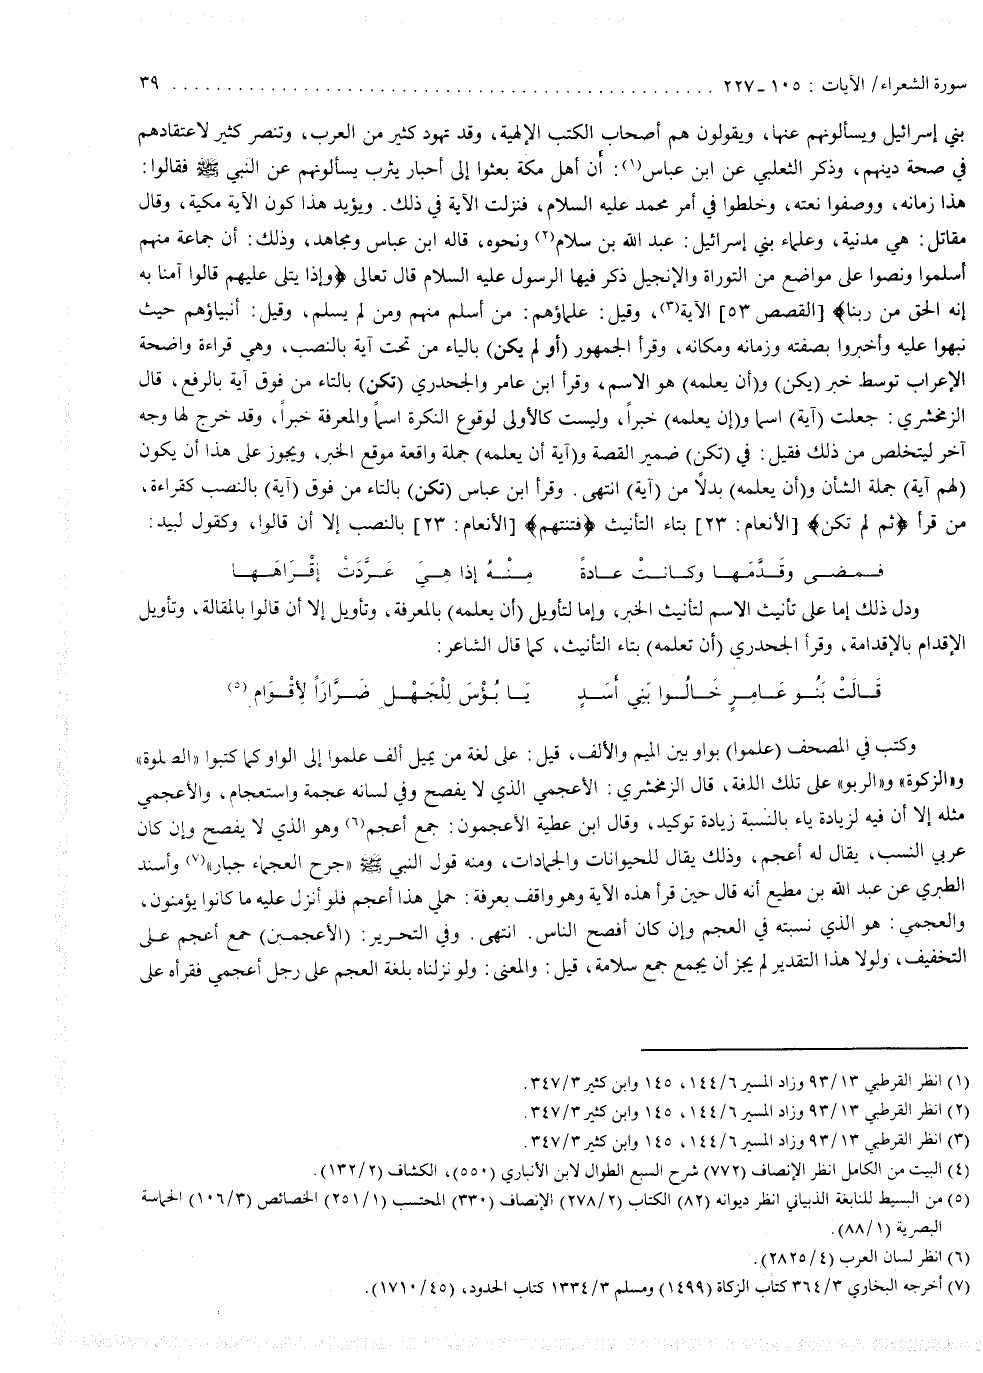 سورة الشعراء/ الآيات : ١٠٥ ـ ٢٢٧ . . . . . . . . . . . . . . . . . . . . . . . . . . . . . . . . . . . . . . . . . . . . . . ٣٩
بني إسرائيل ويسألونهم عنها، ويقولون هم أصحاب الكتب الإلهية، وقد تهود كثير من العرب، وتنصر كثير لاعتقادهم
في صحة دينهم، وذكر الثعلبي عن ابن عباس(١): أن أهل مكة بعثوا إلى أحبار يثرب يسألونهم عن النبي ﷺ فقالوا:
هذا زمانه، ووصفوا نعته، وخلطوا في أمر محمد عليه السلام، فنزلت الآية في ذلك. ويؤيد هذا كون الآية مكية، وقال
مقاتل: هي مدنية، وعلماء بني إسرائيل: عبد الله بن سلام(٢) ونحوه، قاله ابن عباس ومجاهد، وذلك: أن جماعة منهم
أسلموا ونصوا على مواضع من التوراة والإنجيل ذكر فيها الرسول عليه السلام قال تعالى ﴿وإذا يتلى عليهم قالوا آمنا به
إنه الحق من ربنا﴾ [القصص ٥٣] الآية(٣)، وقيل: علماؤهم: من أسلم منهم ومن لم يسلم، وقيل: أنبياؤهم حيث
نبهوا عليه وأخبروا بصفته وزمانه ومكانه، وقرأ الجمهور (أو لم يكن) بالياء من تحت آية بالنصب، وهي قراءة واضحة
الإعراب توسط خبر (يكن) و(أن يعلمه) هو الاسم، وقرأ ابن عامر والجحدري (تكن) بالتاء من فوق آية بالرفع، قال
الزمخشري: جعلت (آية) اسما و(إن يعلمه) خبراً، وليست كالأولى لوقوع النكرة اسماً والمعرفة خبراً، وقد خرج لها وجه
آخر ليتخلص من ذلك فقيل: في (تكن) ضمير القصة و(آية أن يعلمه) جملة واقعة موقع الخبر، ويجوز على هذا أن يكون
(لهم آية) جملة الشأن و(أن يعلمه) بدلاً من (آية) انتهى. وقرأ ابن عباس (تكن) بالتاء من فوق (آية) بالنصب كقراءة،
من قرأ ﴿ثم لم تكن﴾ [الأنعام: ٢٣] بتاء التأنيث ﴿فتنتهم﴾ [الأنعام: ٢٣] بالنصب إلا أن قالوا، وكقول لبيد:
فـمـضـى وقَـدَّمَـهـا وكـانـتْ عـادةً مِـنْـهُ إذا هِـيَ عَـرَّدَتْ إقْـرَاهَـهـا
ودل ذلك إما على تأنيث الاسم لتأنيث الخبر، وإما لتأويل (أن يعلمه) بالمعرفة، وتأويل إلا أن قالوا بالمقالة، وتأويل
الإقدام بالإقدامة، وقرأ الجحدري (أن تعلمه) بتاء التأنيث، كما قال الشاعر:
قَـالَتْ بَنُـو عَـامِـرٍ خَـالُـوا بَنِي أَسَـدٍ يَـا بُـؤْسَ لِلْجَهْـلِ ضَـرَّارَاً لأِقْـوَامِ (٥)
وكتب في المصحف (علموا) بواو بين الميم والألف، قيل: على لغة من يميل ألف علموا إلى الواو كما كتبوا «الصلوة»
و«الزكوة» و«الربو» على تلك اللغة، قال الزمخشري: الأعجمي الذي لا يفصح وفي لسانه عجمة واستعجام، والأعجمي
مثله إلا أن فيه لزيادة ياء بالنسبة زيادة توكيد، وقال ابن عطية الأعجمون: جمع أعجم(٦) وهو الذي لا يفصح وإن كان
عربي النسب، يقال له أعجم، وذلك يقال للحيوانات والجمادات، ومنه قول النبي ﷺ «جرح العجماء جبار»(٧) وأسند
الطبري عن عبد الله بن مطيع أنه قال حين قرأ هذه الآية وهو واقف بعرفة: جملي هذا أعجم فلو أنزل عليه ما كانوا يؤمنون،
والعجمي: هو الذي نسبته في العجم وإن كان أفصح الناس. انتهى. وفي التحرير: (الأعجمـين) جمع أعجم علـى
التخفيف، ولولا هذا التقدير لم يجز أن يجمع جمع سلامة، قيل: والمعنى: ولو نزلناه بلغة العجم على رجل أعجمي فقرأه على
(١) انظر القرطبي ٩٣/١٣ وزاد المسير ١٤٤/٦، ١٤٥ وابن كثير ٣٤٧/٣.
(٢) انظر القرطبي ٩٣/١٣ وزاد المسير ١٤٤/٦، ١٤٥ وابن كثير ٣٤٧/٣.
(٣) انظر القرطبي ٩٣/١٣ وزاد المسير ١٤٤/٦، ١٤٥ وابن كثير ٣٤٧/٣.
(٤) البيت من الكامل انظر الإنصاف (٧٧٢) شرح السبع الطوال لابن الأنباري (٥٥٠)، الكشاف (١٣٢/٢).
(٥) من البسيط للنابغة الذبياني انظر ديوانه (٨٢) الكتاب (٢٧٨/٢) الإنصاف (٣٣٠) المحتسب (٢٥١/١) الخصائص (١٠٦/٣) الحماسة
البصرية (٨٨/١).
(٦) انظر لسان العرب (٢٨٢٥/٤).
(٧) أخرجه البخاري ٣٦٤/٣ كتاب الزكاة (١٤٩٩) ومسلم ١٣٣٤/٣ كتاب الحدود، (١٧١٠/٤٥).